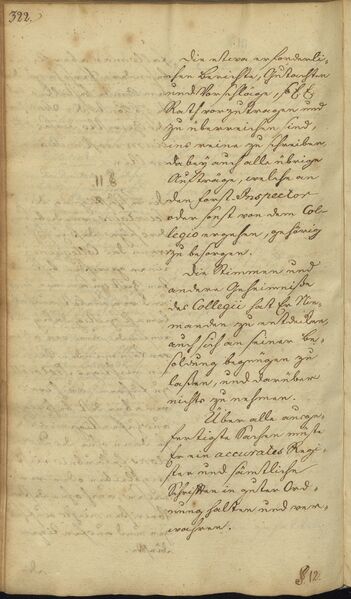 322.
Die etwa erforderli-
chen Berichte, Gutachten
und Vorschläge, so
Rath vorzutragen und
zu überreichen sind,
ins reine zu schreiben,
dabey auch alle übrige
Aufträge, welche an
den Forst-Inspector
oder sonst von dem Col-
legio ergehen, gehörig
zu besorgen.
Die Stimmen und
andere Geheimniße
des Collegii hat Er Nie-
manden zu entdecken,
auch sich an seiner Be-
soldung begnügen zu
laßen, und darüber
nichts zu nehmen.
Über alle ausge-
fertigte Sachen müste
Er ein accurates Regi-
ster und sämtliche
Schriften in guter Ord-
nung halten und ver-
wahren.
§ 12.